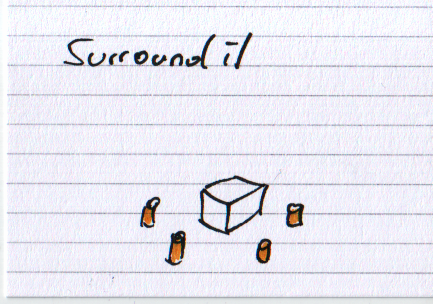 Surround it